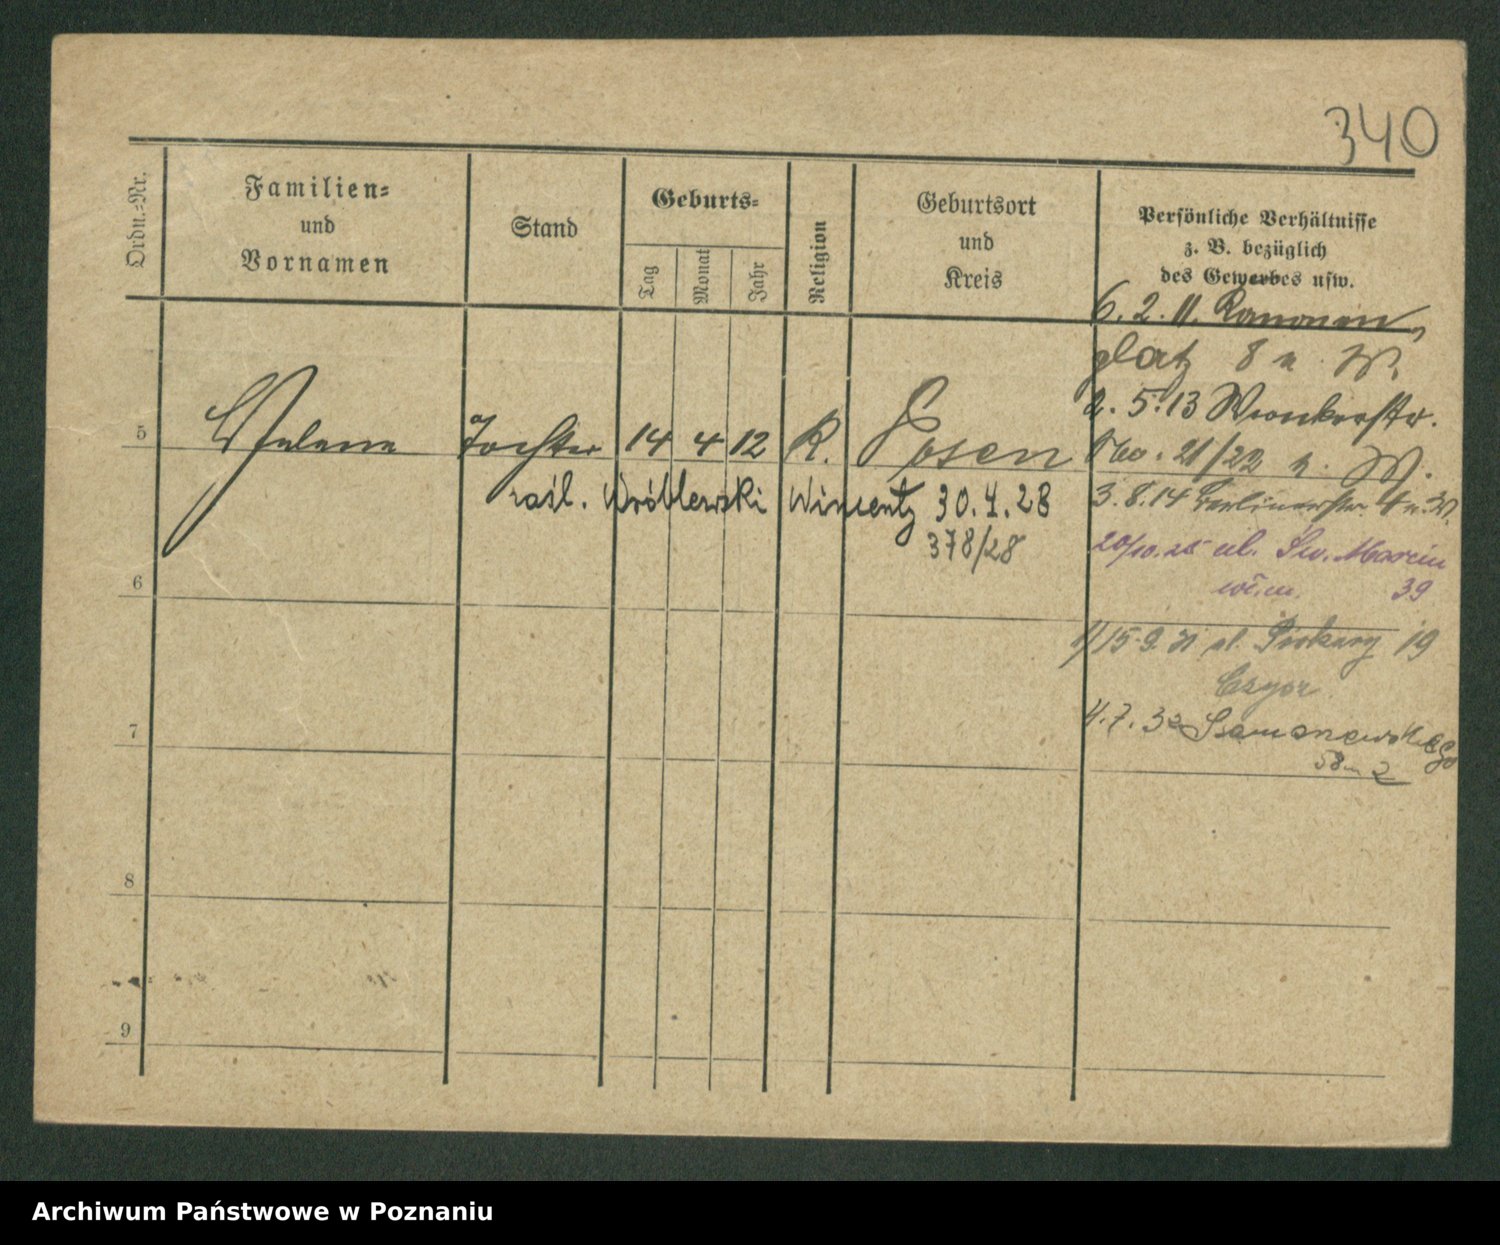 340
Ordn.-Nr.
Familien-
und
Vornamen
Stand
Geburts-
Tag
Monat
Jahr
Religion
Geburtsort
und
Kreis
Persönliche Verhältnisse
z. B. bezüglich
des Gewerbes usw.
6. 2. 11. Kanonen
platz 8 n. W.
5 Helene Tochter 14 4 12 K. Posen
2. 5. 13 Wronkerstr.
No. 21/22 n. W.
zaśl. Wróblewski Wincenty 30. 4. 28
378/28
3. 8. 14 Berlinerstr. 4 n. W.
20/10. 25 ul. Św. Marcin
39
6
15. 9. 31 ul. 19
7
4. 7. 32 Szamarzewskiego
58 m 2
8
9
Archiwum Państwowe w Poznaniu